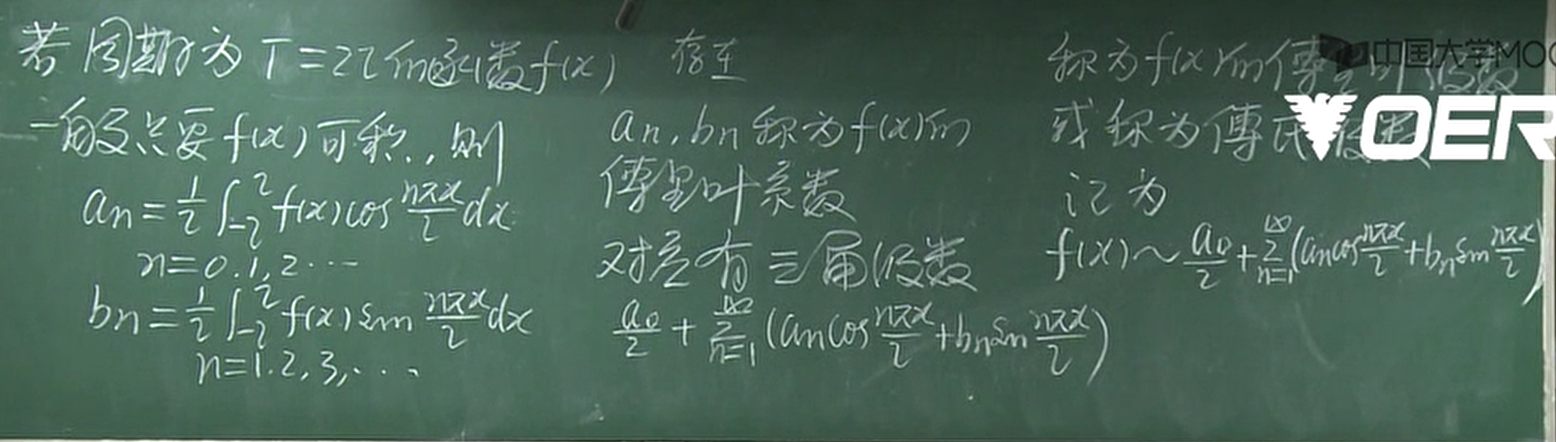 若周期为 T=2l的函数f(x)
一般只要f(x)可积,则
an=1/l ∫_{-l}^{l} f(x)cos nπx/l dx
n=0.1,2...
bn=1/l ∫_{-l}^{l} f(x)sin nπx/l dx
n=1.2,3,...
存在
an,bn称为f(x)的
傅里叶系数
对应有三角级数
a0/2+∑_{n=1}^{∞}(an cos nπx/l+bn sin nπx/l)
称为f(x)的傅里叶级数
或称为傅氏级数
记为
f(x)~a0/2+∑_{n=1}^{∞}(an cos nπx/l+bn sin nπx/l)
中国大学MOO
OER